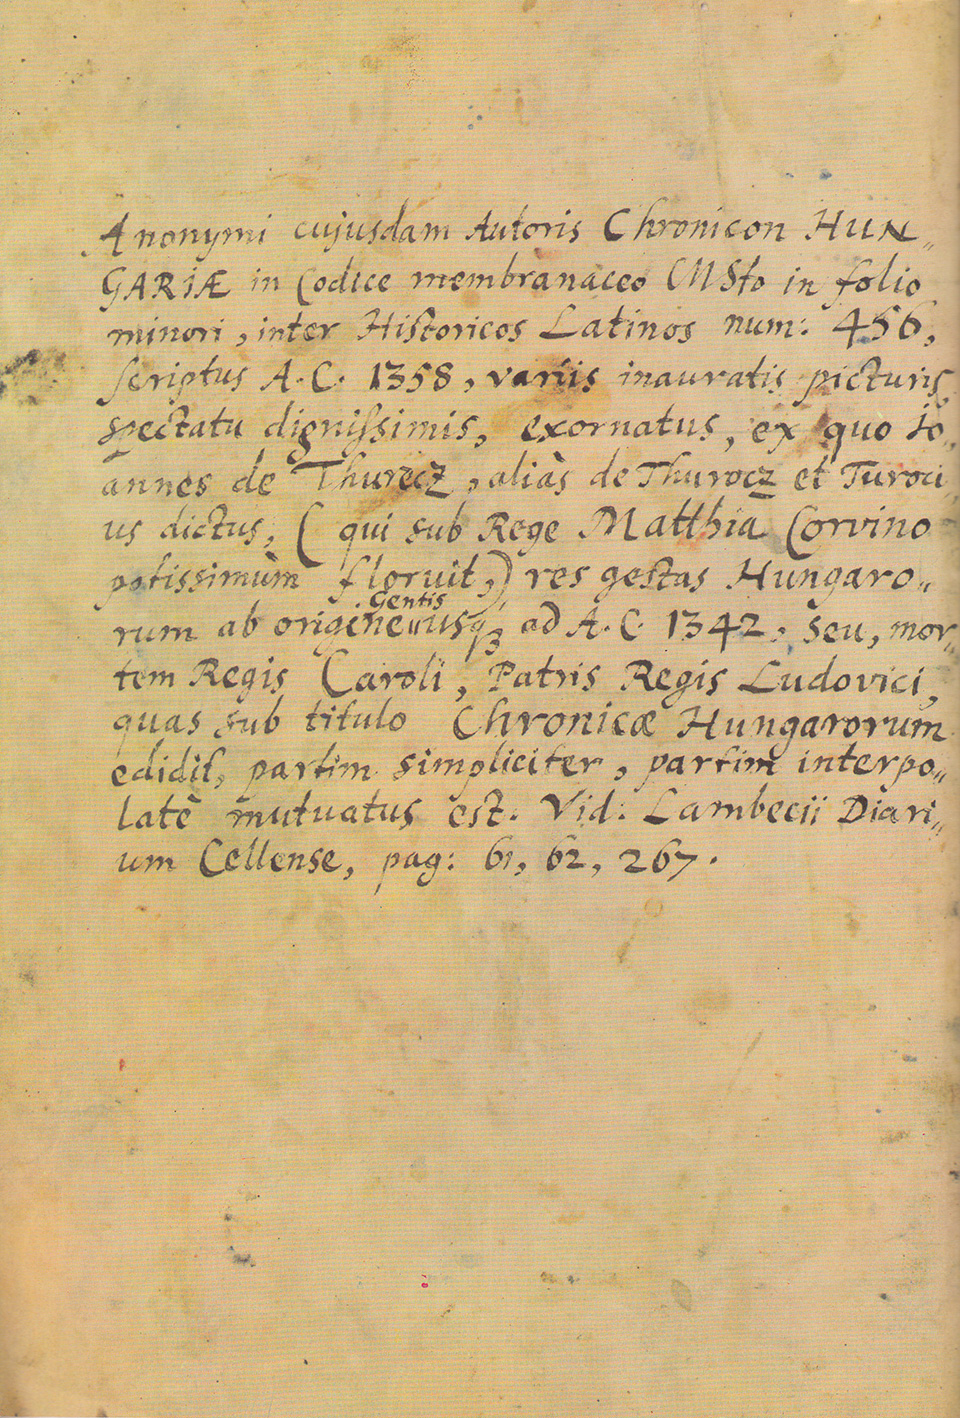 Anonymi cujusdam Autoris Chronicon HUN„
GARIÆ in Codice membranaceo MSto in folio
minori, inter Historicos Latinos num: 456,
scriptus A. C. 1358, variis inauratis picturis,
spectatu dignissimis, exornatus, ex quo Jo„
annes de Thurecz, aliàs de Thurocz et Turoci„
us dictus, (qui sub Rege Matthia Corvino
potissimùm floruit,) res gestas Hungaro„
Gentis
rum ab origine„ usq3 ad A. C. 1342, seu, mor„
tem Regis Caroli, Patris Regis Ludovici,
quas sub titulo Chronicæ Hungarorum
edidit, partim simpliciter, partim interpo„
latè mutuatus est. Vid: Lambecii Diari„
um Cellense, pag: 61, 62, 267.